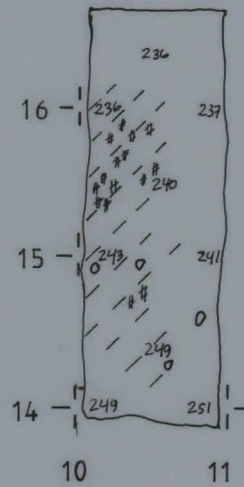 236
16 236 237
240
15 243 241
249
14 249 251
10 11